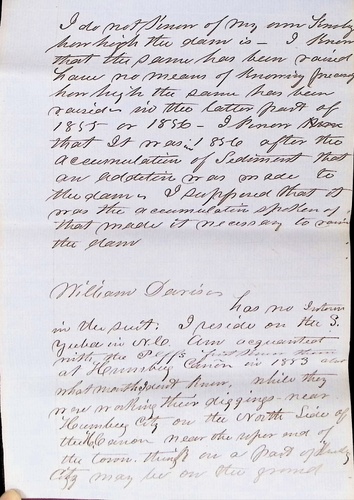 I do not know of my own Knowl
how high the dam is – I know
that the same has been raised
have no means of knowing precise
how high the same has been
raised in the latter part of
1855 or 1856 – I know
that It was in 1856 after the
accumulation of Sediment that
an addition was made to
the dam I supposed that it
was the accumulation spoken of
that made it necessary to raise
the dam
William Davison
has no Interes
in the suit. I reside on the S.
Yuba in N.Co. Am acquainted
with the Pltffs first knew them
at Humbug Canon in 1853
what month dont know, while they
were working their diggings near
Humbug City on the North Side of
the Canon near the uper end of
the town. think on a part of
City may be on the ground